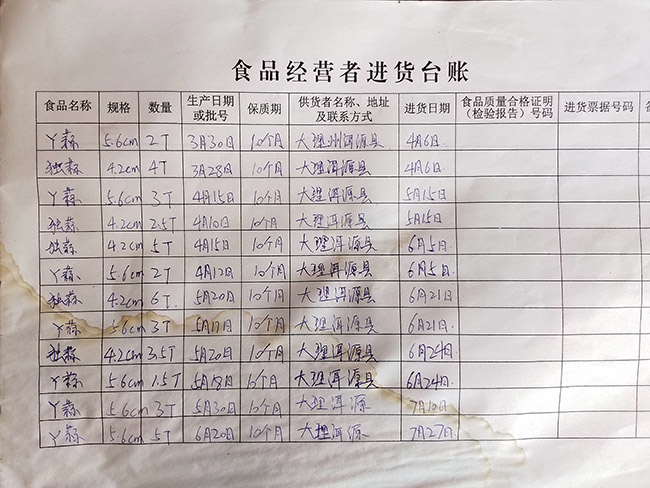 食品经营者进货台账
食品名称 规格 数量 生产日期或批号 保质期 供货者名称、地址及联系方式 进货日期 食品质量合格证明（检验报告）号码 进货票据号码
丫蒜 5.6cm 2T 3月30日 10个月 大理州洱源县 4月6日.
独蒜 4.2cm 4T 3月28日 10个月 大理洱源县 4月6日.
丫蒜 5.6cm 3T 4月15日 10个月 大理洱源县 5月15日
独蒜 4.2cm 2.5T 4月10日 10个月 大理洱源县 5月15日.
独蒜 4.2cm 5T 4月15日 10个月 大理洱源县 6月5日.
丫蒜 5.6cm 2T 4月12日 10个月 大理洱源县 6月5日.
独蒜 4.2cm 6T. 5月20日 10个月 大理洱源县 6月21日
丫蒜 5.6cm 3T 5月17日 10个月 大理洱源县 6月21日.
独蒜 4.2cm 3.5T 5月20日 10个月 大理洱源县 6月24日
丫蒜 5.6cm 1.5T 5月18日 10个月 大理洱源县 6月24日.
丫蒜 5.6cm 3T 5月30日 10个月 大理洱源 7月10日
丫蒜 5.6cm 5T 6月20日 10个月 大理洱源 7月27日.